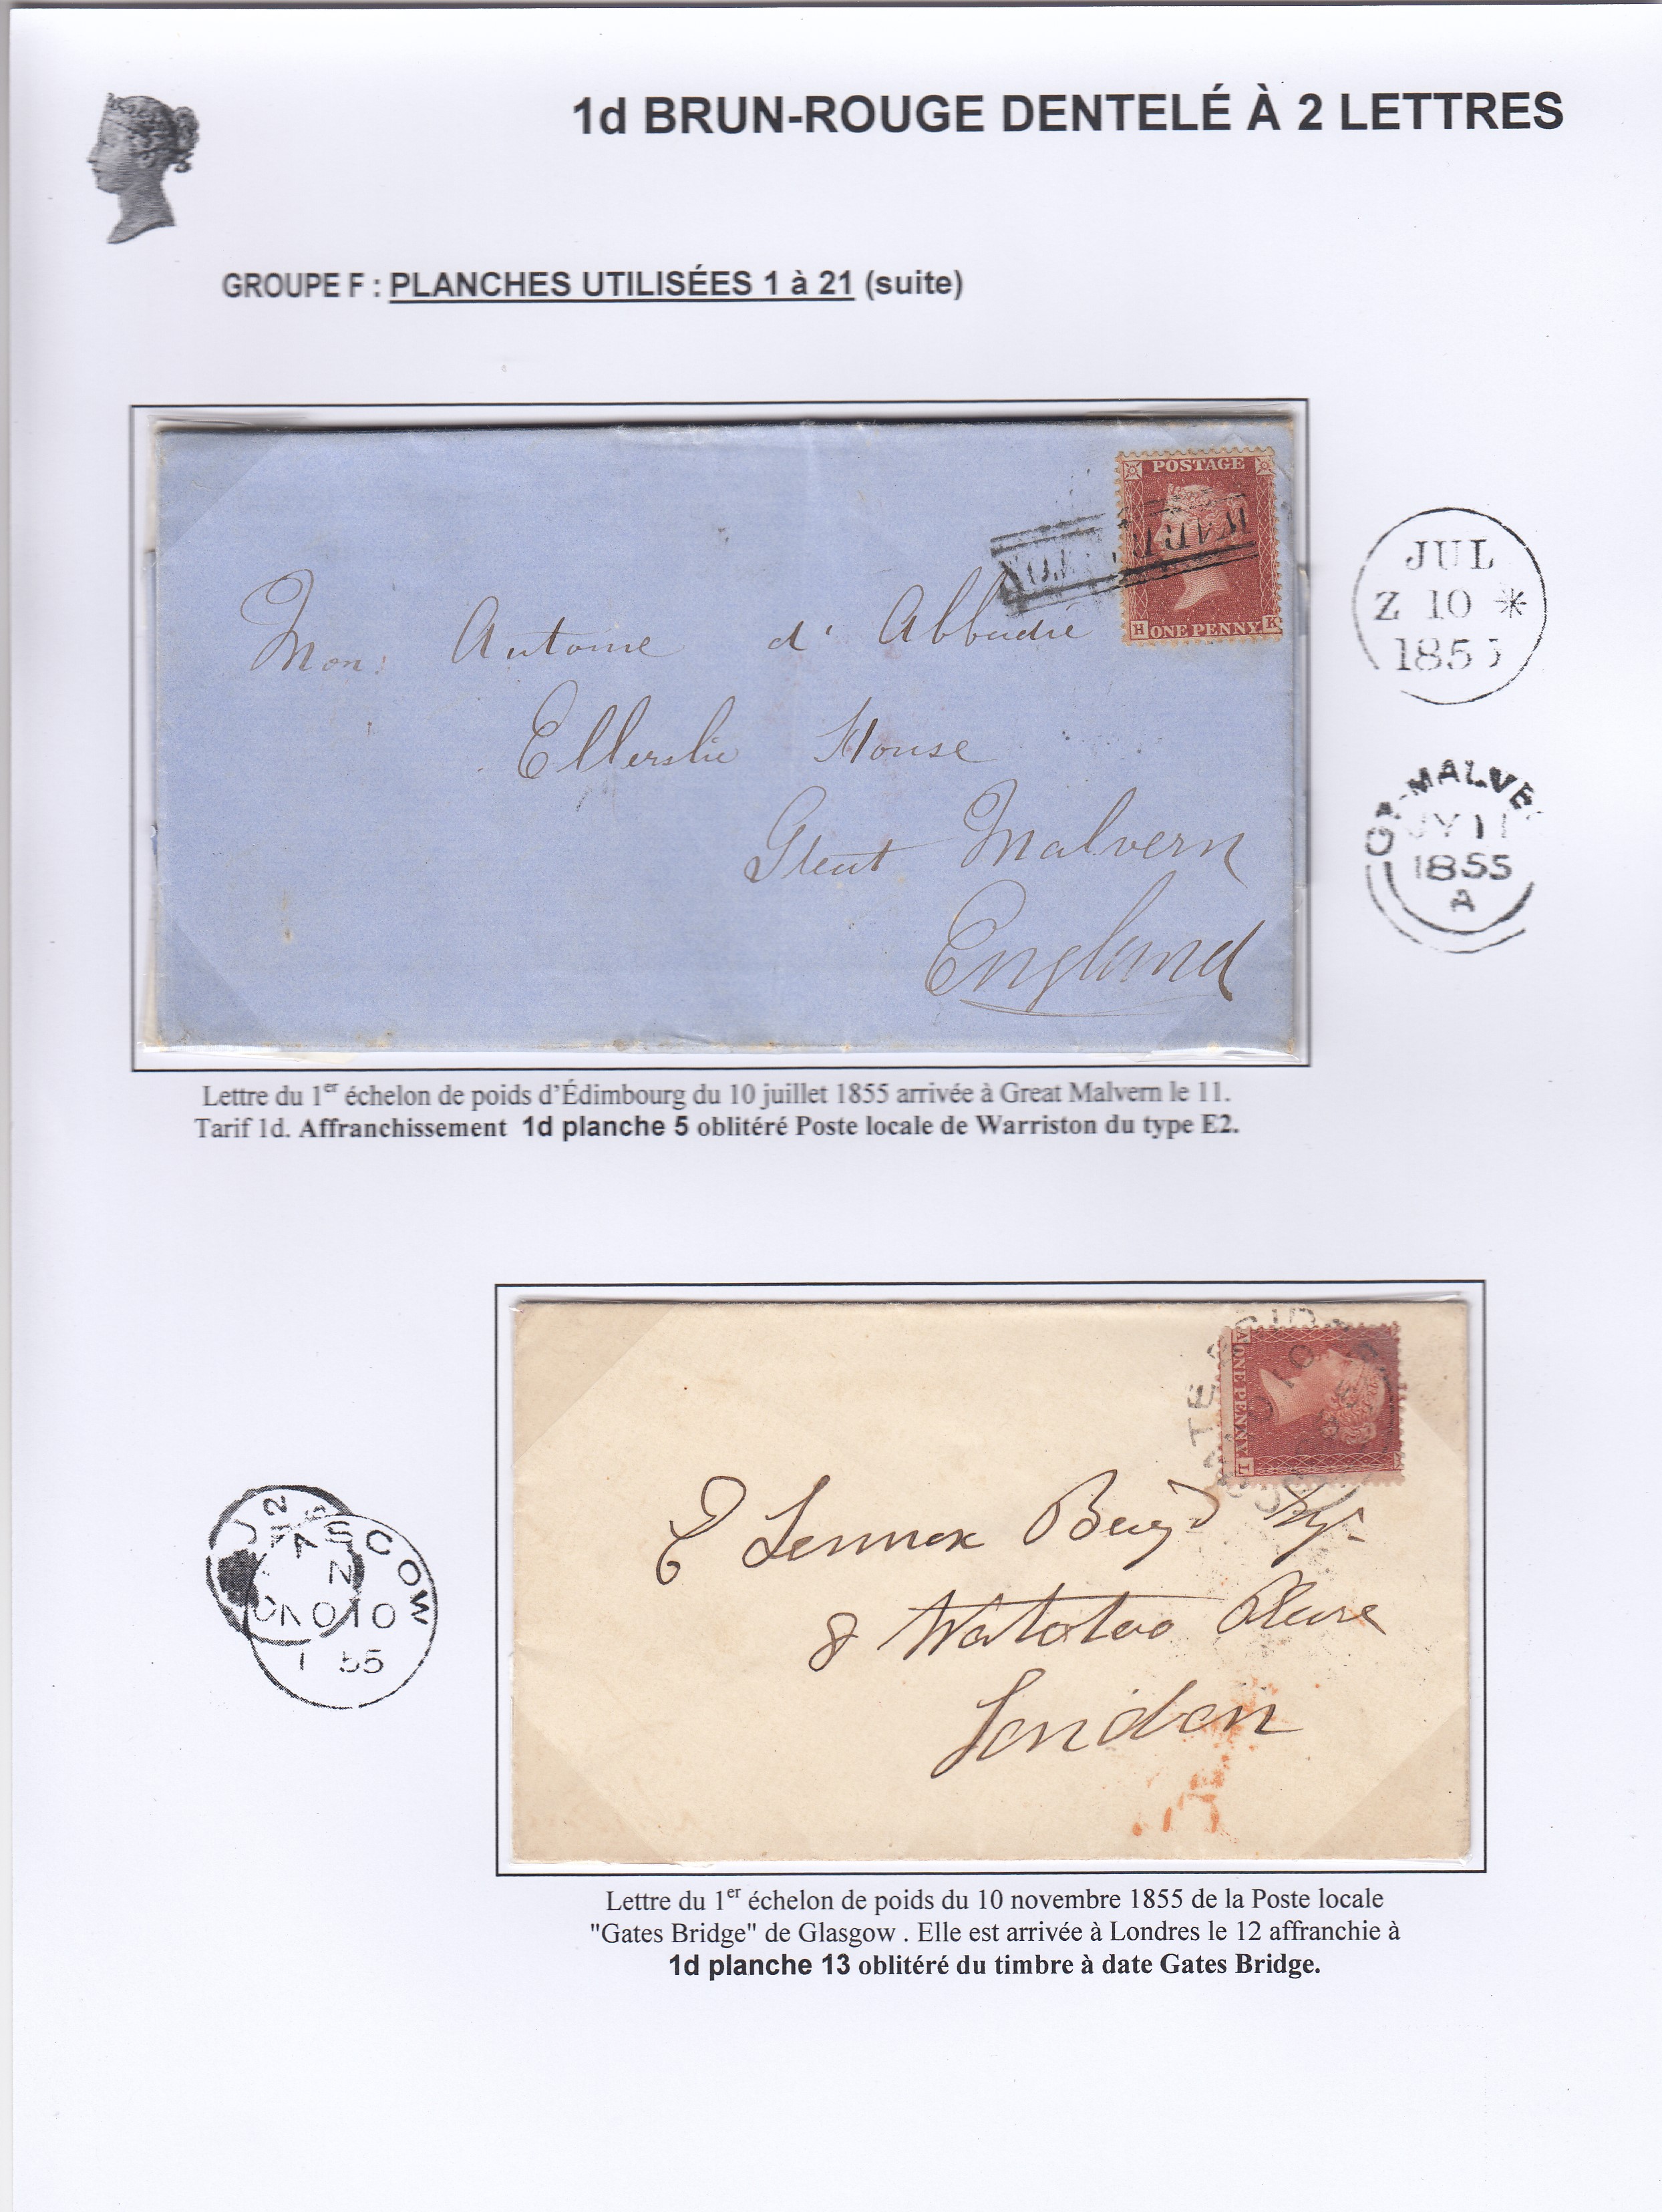 1d BRUN-ROUGE DENTELÉ À 2 LETTRES
GROUPE F : PLANCHES UTILISÉES 1 à 21 (suite)
POSTAGE
H ONE PENNY K
Mon. Antoine d' Abbadie
Ellerslie House
Great Malvern
England
JUL
Z 10 *
1855
GT-MALVE
JY 11
1855
A
Lettre du 1er échelon de poids d'Édimbourg du 10 juillet 1855 arrivée à Great Malvern le 11.
Tarif 1d. Affranchissement 1d planche 5 oblitéré Poste locale de Warriston du type E2.
A ONE PENNY L
E Lennox Boyd Esqr
8 Waterloo Place
London
ASCOW
NO 10
55
Lettre du 1er échelon de poids du 10 novembre 1855 de la Poste locale
"Gates Bridge" de Glasgow . Elle est arrivée à Londres le 12 affranchie à
1d planche 13 oblitéré du timbre à date Gates Bridge.